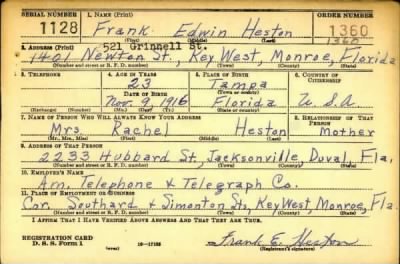 SERIAL NUMBER 1. NAME (Print) ORDER NUMBER
1128 Frank Edwin Heston 1360
(First) (Middle) (Last) 1360
2. ADDRESS (Print) 521 Grinnell St.
1401 Newton St., Key West, Monroe, Florida
(Number and street or R. F. D. number) (Town) (County) (State)
3. TELEPHONE 4. AGE IN YEARS 5. PLACE OF BIRTH 6. COUNTRY OF CITIZENSHIP
23 Tampa
DATE OF BIRTH (Town or county)
Nov. 9, 1916 Florida U.S.A
(Exchange) (Number) (Mo.) (Day) (Yr.) (State or country)
7. NAME OF PERSON WHO WILL ALWAYS KNOW YOUR ADDRESS 8. RELATIONSHIP OF THAT PERSON
Mrs. Rachel Heston Mother
(Mr., Mrs., Miss) (First) (Middle) (Last)
9. ADDRESS OF THAT PERSON
2233 Hubbard St, Jacksonville, Duval, Fla,
(Number and street or R. F. D. number) (Town) (County) (State)
10. EMPLOYER'S NAME
Am. Telephone & Telegraph Co.
11. PLACE OF EMPLOYMENT OR BUSINESS
Cor. Southard & Simonton Sts, Key West, Monroe, Fla.
(Number and street or R. F. D. number) (Town) (County) (State)
I AFFIRM THAT I HAVE VERIFIED ABOVE ANSWERS AND THAT THEY ARE TRUE.
REGISTRATION CARD
D. S. S. Form 1 16-17105 Frank E. Heston